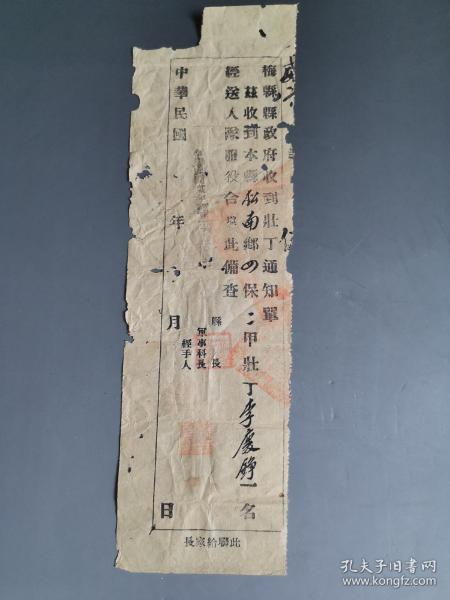 梅縣縣政府收到壯丁通知單
茲收到本縣松南鄉四保二甲壯丁李慶錚一名
經送入隊服役合填此備查
縣長
軍事科長
經手人
中華民國 年 月 日
此聯給家長
孔夫子旧书网
www.kongfz.com